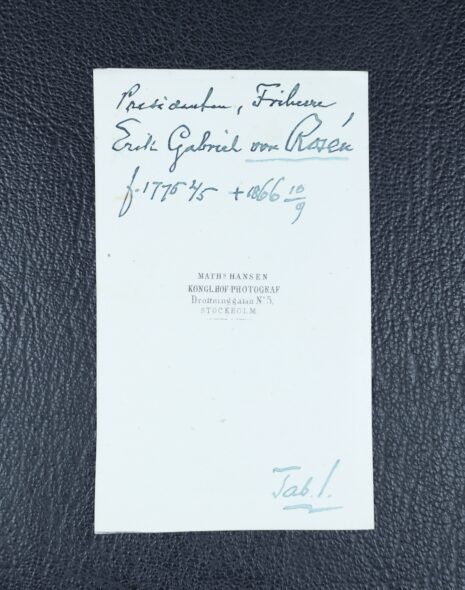 Presidenten, Friherre
Erik Gabriel von Rosén
f. 1775 2/5 + 1866 10/9
MATHS HANSEN
KONGL. HOF-PHOTOGRAF
Drottninggatan No 5,
STOCKHOLM
Tab. 1.